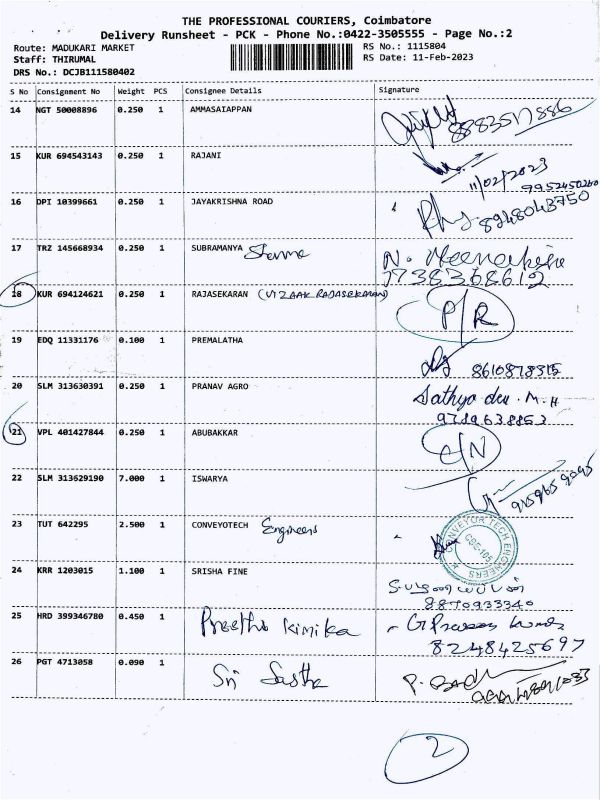 THE PROFESSIONAL COURIERS, Coimbatore
Delivery Runsheet - PCK - Phone No.:0422-3505555 - Page No.:2
Route: MADUKARI MARKET RS No.: 1115804
Staff: THIRUMAL RS Date: 11-Feb-2023
DRS No.: DCJB111580402
S No Consignment No Weight PCS Consignee Details Signature
14 NGT 50008896 0.250 1 AMMASAIAPPAN
8883517886
15 KUR 694543143 0.250 1 RAJANI
11/02/2023
9952450260
16 DPI 10399661 0.250 1 JAYAKRISHNA ROAD 8248043750
17 TRZ 145668934 0.250 1 SUBRAMANYA Sharma N. Meenakshi
7738368612
18 KUR 694124621 0.250 1 RAJASEKARAN (VIZAAK RAJASEKARAN) P/R
19 EDQ 11331176 0.100 1 PREMALATHA
8610878315
20 SLM 313630391 0.250 1 PRANAV AGRO Sathya dev. M.H
9789638853
21 VPL 401427844 0.250 1 ABUBAKKAR C/N
22 SLM 313629190 7.000 1 ISWARYA
23 TUT 642295 2.500 1 CONVEYOTECH Engineers CONVEYOR TECH ENGINEERS
24 KRR 1203015 1.100 1 SRISHA FINE
8870933340
25 HRD 399346780 0.450 1 Preethu Kimika G Praveen Kumar
8248425697
26 PGT 4713058 0.090 1 Sri Sastha
2